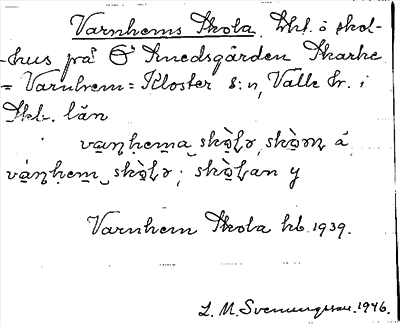 Varnhems Skola, bbl. o skol-
-hus på Ö Smedsgården Skarke
= Varnhem = Kloster s:n, Valle hr. i
Skb. län
va̤ṇḥema skòlə, skòɷn å
váṇḥem skòlə; skòlan y
Varnhem Skola hb. 1939.
L. M. Svenungsson. 1946.